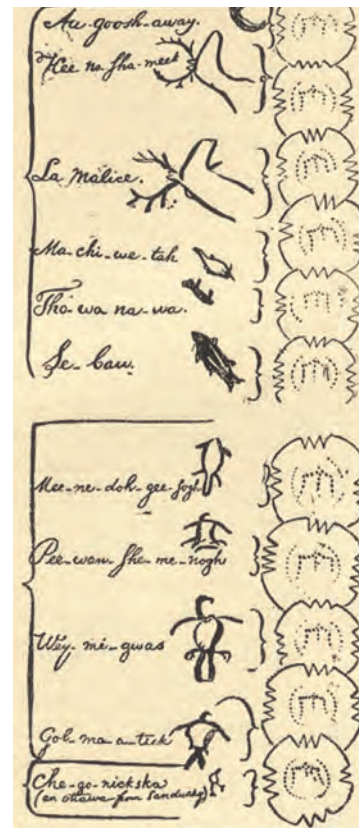 Au-goosh-away.
Kee-no-sha-meek
La Malice.
Ma-chi-we-tah
Tho-wa-na-wa.
Se-baw.
Mee-ne-doh-gee-sogh
Pee-wan-she-me-nogh
Wey-mi-gwas
Gob-ma-a-tick
Che-go-nickska
(an ottawa from Sandusky)